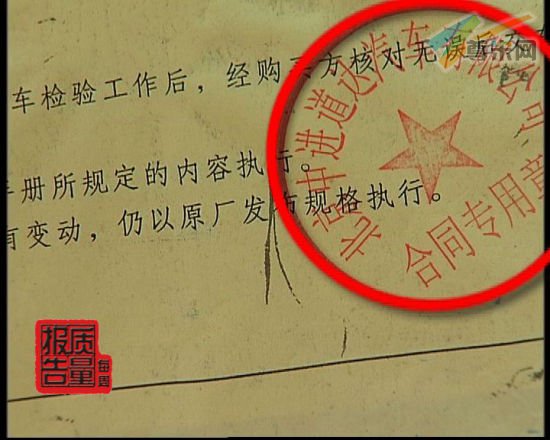 车检验工作后，经购买方核对无误后交车
手册所规定的内容执行。
有变动，仍以原厂发布规格执行。
北京中进道达汽车有限公司
合同专用章
每周
质量
报告